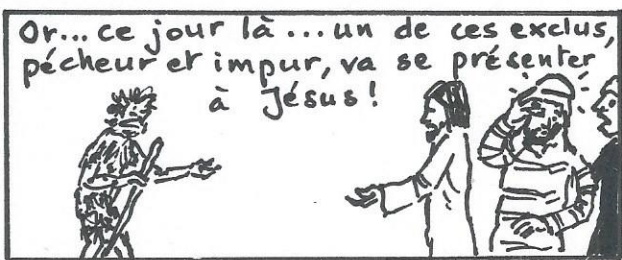 Or... ce jour là... un de ces exclus,
pécheur et impur, va se présenter
à Jésus!